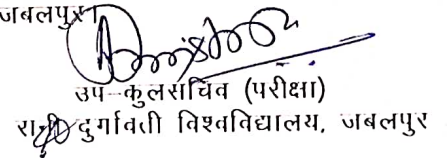 जबलपुर।
उप-कुलसचिव (परीक्षा)
रानी दुर्गावती विश्वविद्यालय, जबलपुर